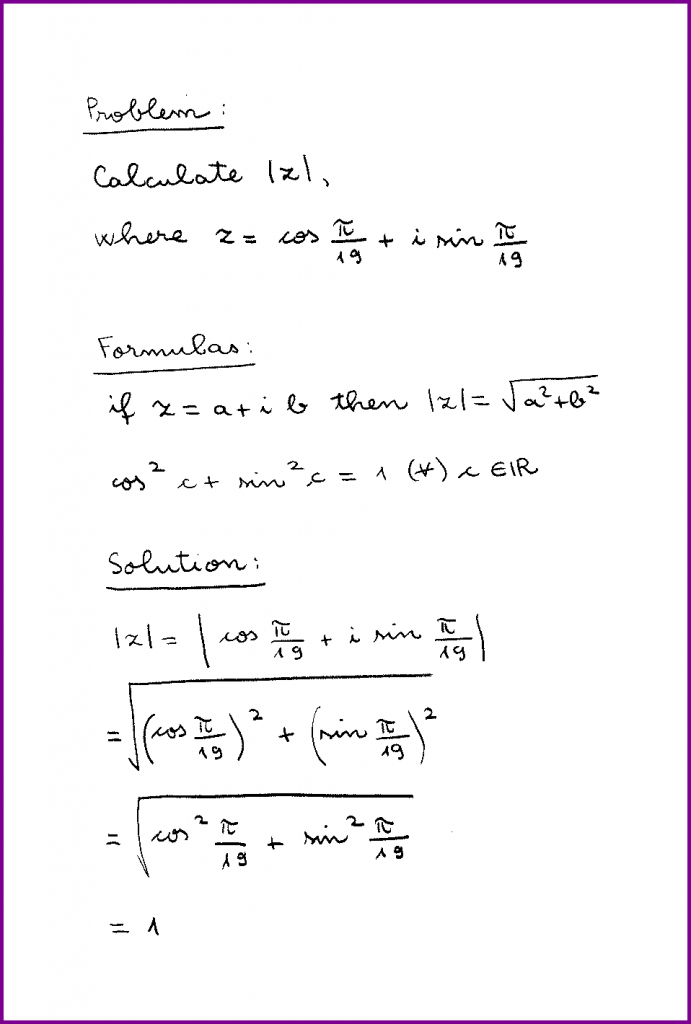 Problem:
Calculate |z|,
where z = cos π/19 + i sin π/19
Formulas:
if z = a + i b then |z| = √(a² + b²)
cos² c + sin² c = 1 (∀) c ∈ ℝ
Solution:
|z| = | cos π/19 + i sin π/19 |
= √((cos π/19)² + (sin π/19)²)
= √(cos² π/19 + sin² π/19)
= 1